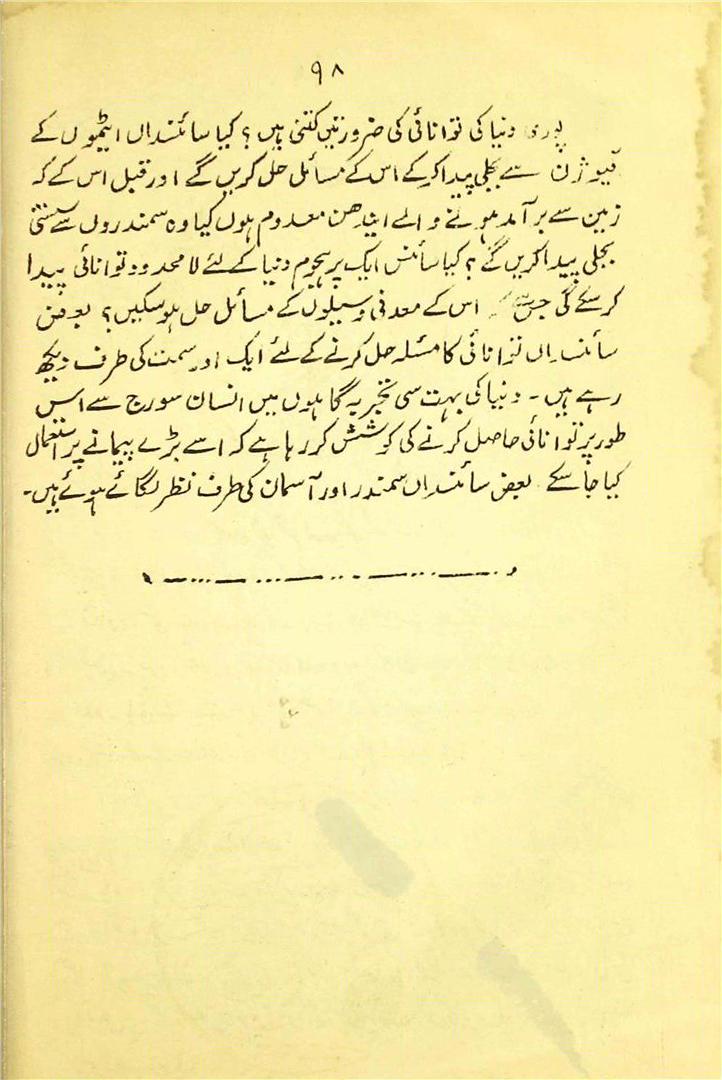 ۹۸
پوری دنیا کی توانائی کی ضرورتیں کتنی ہیں ؟ کیا سائنسداں ایٹموں کے
فیوژن سے بجلی پیدا کرکے اس کے مسائل حل کریں گے اور قبل اس کے کہ
زمین سے برآمد ہونے والے ایندھن معدوم ہوں کیا وہ سمندروں سے سستی
بجلی پیدا کریں گے ؟ کیا سائنس ایک پرہجوم دنیا کے لئے لامحدود توانائی پیدا
کرسکے گی جس سے اس کے معدنی وسیلوں کے مسائل حل ہوسکیں ؟ بعض
سائنسداں توانائی کا مسئلہ حل کرنے کے لئے ایک اور سمت کی طرف دیکھ
رہے ہیں ۔ دنیا کی بہت سی تجربہ گاہوں میں انسان سورج سے اس
طور پر توانائی حاصل کرنے کی کوشش کررہا ہے کہ اسے بڑے پیمانے پر استعمال
کیا جاسکے ۔ بعض سائنسداں سمندر اور آسمان کی طرف نظر لگائے ہوئے ہیں ۔